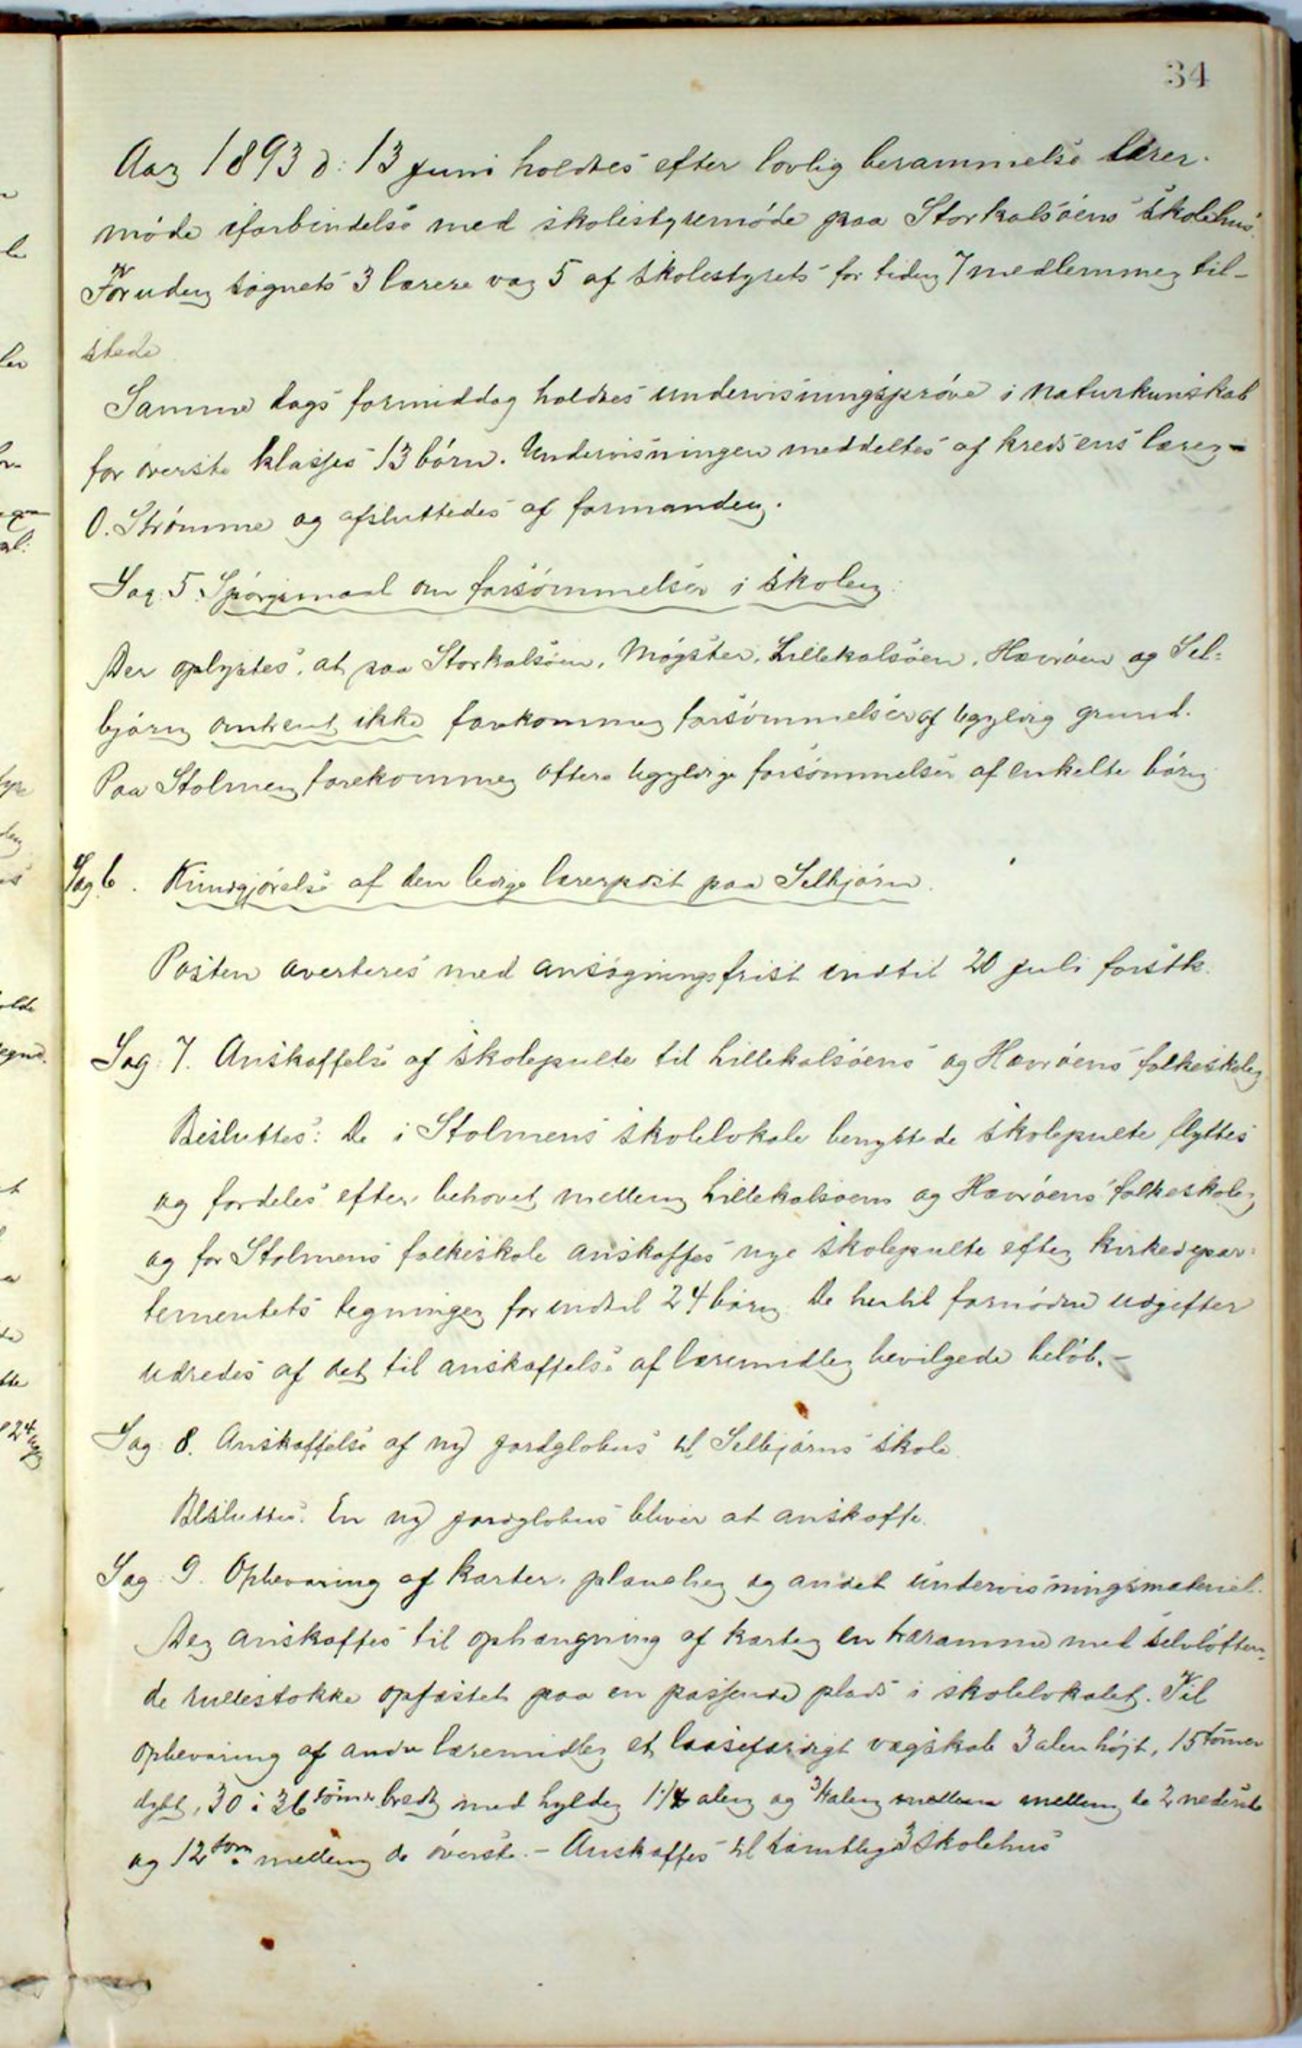 34
Aar 1893 d: 13 juni holdtes efter lovlig berammelse lærer-
møde iforbindelse med skolestyremøde paa Storkalsøens skolehus.
Foruden sognets 3 lærere var 5 af skolestyrets for tiden 7 medlemmer til-
stede
Samme dags formiddag holdtes undervisningsprøve i naturkunskab
for øverste klasses 13 børn. Undervisningen meddeltes af kredsens lærer
O. Strømme og afsluttedes af formanden.
Sag. 5. Spørgsmaal om forsømmelser i skolen.
Der oplystes, at paa Storkalsøen, Møgster, Lillekalsøen, Hævrøen og Sel-
bjørn omtrent ikke forekommer forsømmelser af ugyldig grund.
Paa Stolmen forekommer oftere ugyldige forsømmelser af enkelte børn
Sag 6. Kundgjørelse af den ledige lærerpost paa Selbjørn.
Posten averteres med ansøgningsfrist indtil 20 juli førstk.
Sag: 7. Anskaffelse af skolepulte til Lillekalsøens og Hævrøens folkeskoler
Besluttes: De i Stolmens skolelokale benyttede skolepulte flyttes
og fordeles efter behovet mellem Lillekalsøens og Hævrøens folkeskoler
og for Stolmens folkeskole anskaffes nye skolepulte efter kirkedepar-
tementets tegninger for indtil 24 børn. De hertil fornødne udgifter
udredes af det til anskaffelse af læremidler bevilgede beløb. -
Sag: 8. Anskaffelse af ny jordglobus til Selbjørns skole.
Besluttes. En ny jordglobus bliver at anskaffe.
Sag: 9. Opbevaring af karter, plancher og andet undervisningsmateriel.
Der anskaffes til ophængning af karter en træramme med selvløften-
de rullestokke opfæstet paa en passende plads i skolelokalet. Til
opbevaring af andre læremidler et laasefærdigt vægskab 3 alen højt, 15 tommer
dybt, 30 à 36 tommer bredt med hylder 1 1/4 alen og 3/4 alen mellem mellem de 2 nederste
og 12 tom. mellem de øverste. - Anskaffes til samtlige 3 skolehus